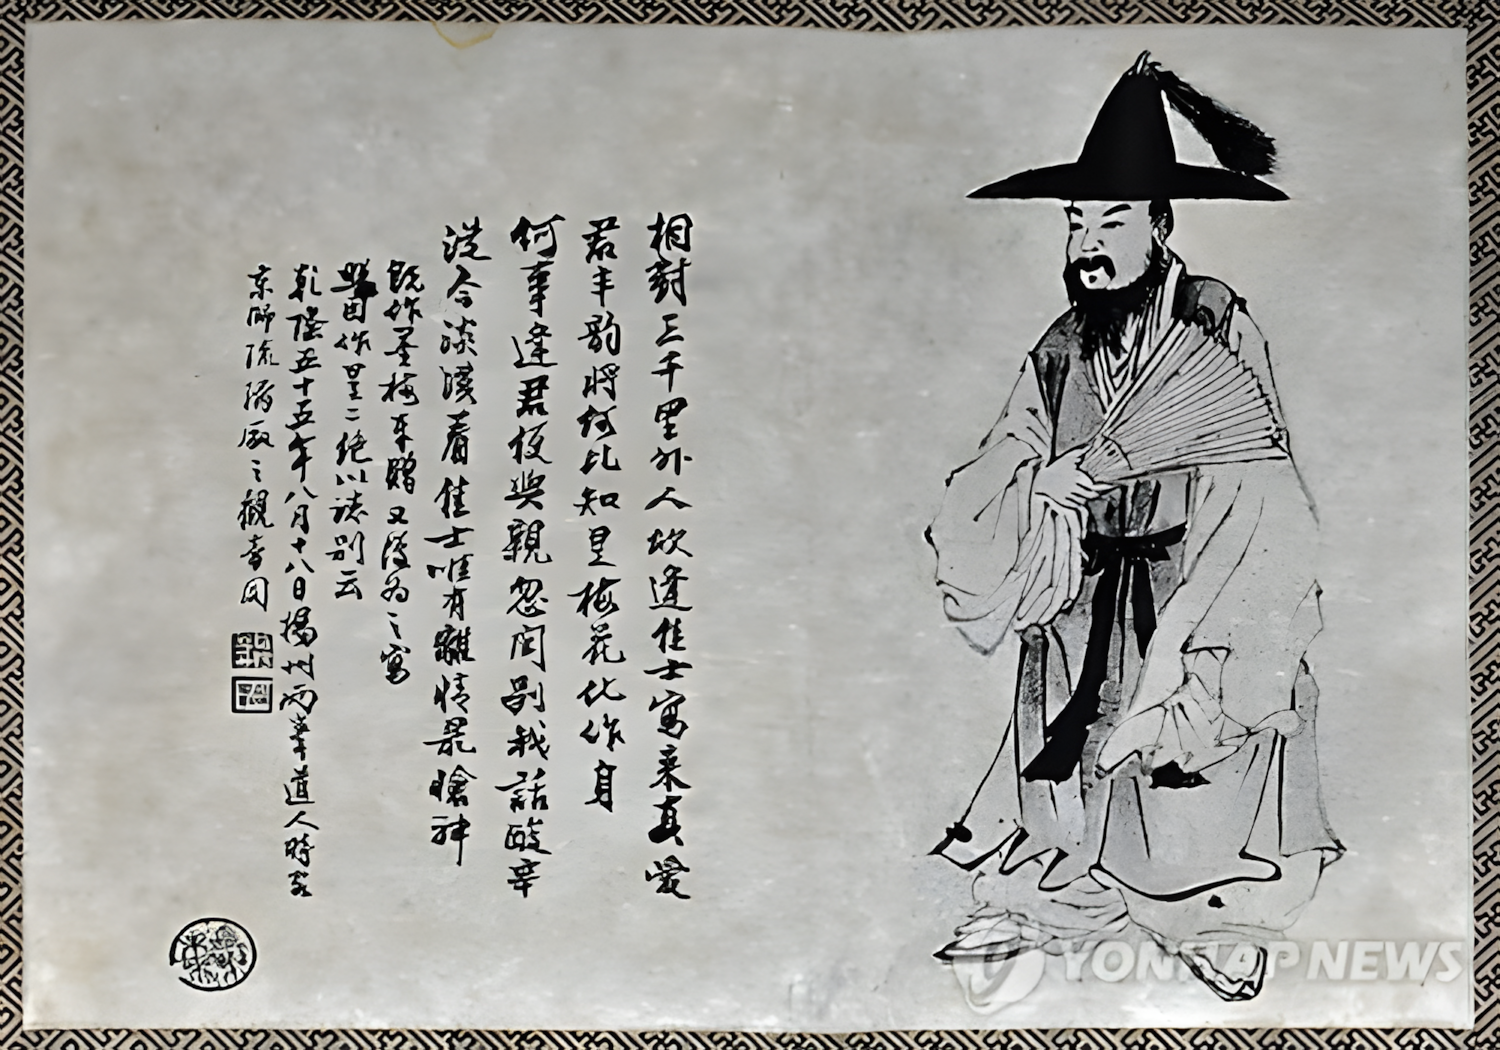 相對三千里外人欣逢佳士寫來真愛
君丰韵將何比知是梅花化作身
何事逢君便與親忽聞別我話酸辛
從今淡漠看佳士唯有離情最愴神
既作墨梅奉贈又復为之寫
照因作是二絕以誌別云
乾隆五十五年八月十八日揚州兩峯道人時客
京師琉璃厰之觀音閣
YONHAP NEWS